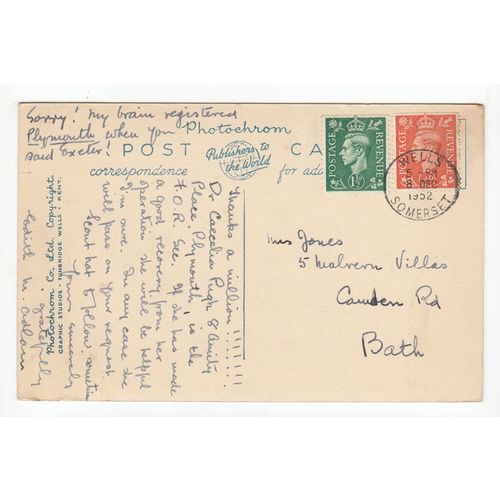 Sorry! My brain registered
Plymouth when you
said Exeter!
Photochrom
POST CA
Publishers to
the World
correspondence for add
POSTAGE REVENUE
1½
POSTAGE REVENUE
WELLS
5
DEC
1952
SOMERSET
Mrs Jones
5 Malvern Villas
Camden Rd
Bath
Thanks a million!!!!!!
Dr Caecelia Pugh 8 Amity
Place, Plymouth is the
F.O.R. Sec. If she has made
a good recovery from her
operation she will be helpful
I'm sure. In any case she
will pass on your request.
Scout hat to follow sometime
Yours sincerely
gratefully
Edith M.
Photochrom Co. Ltd. Copyright.
GRAPHIC STUDIOS · TUNBRIDGE WELLS · KENT.